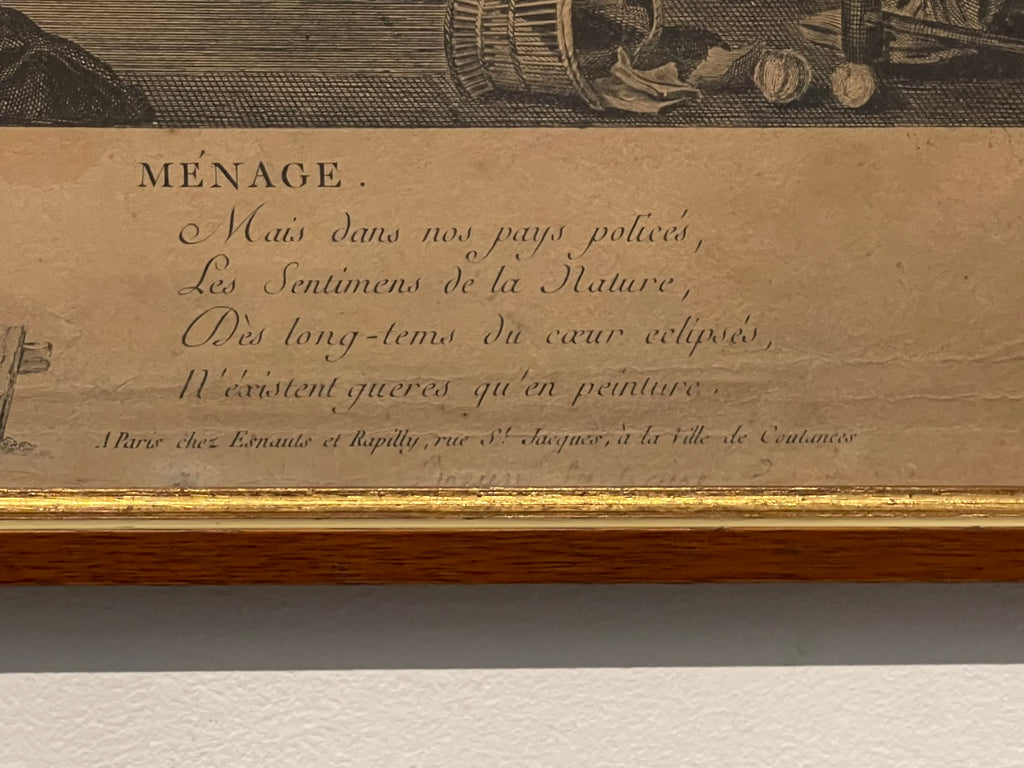 MÉNAGE.
Mais dans nos pays policés,
Les Sentimens de la Nature,
Dès long-tems du cœur eclipsés,
N'éxistent gueres qu'en peinture.
A Paris chez Esnauts et Rapilly, rue St. Jacques, à la Ville de Coutances